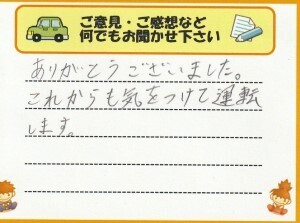 ご意見・ご感想など
何でもお聞かせ下さい
ありがとうございました。
これからも気をつけて運転
します。